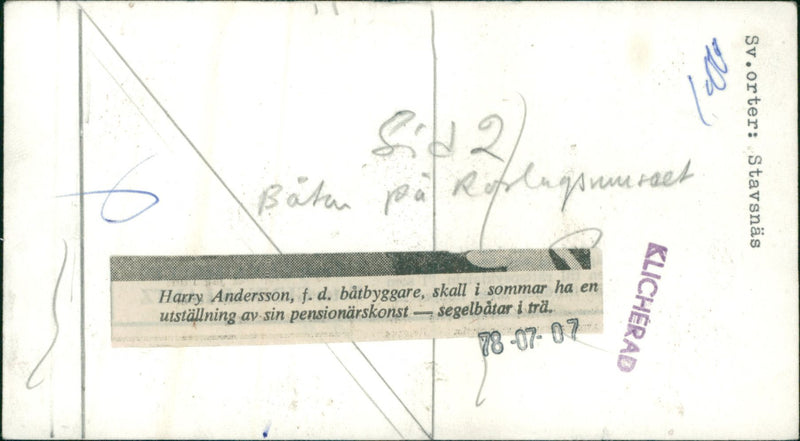 Sid 2
Båten på Roslagsmuseet
Harry Andersson, f. d. båtbyggare, skall i sommar ha en
utställning av sin pensionärskonst — segelbåtar i trä.
78-07-07
KLICHERAD
Sv.orter: Stavsnäs